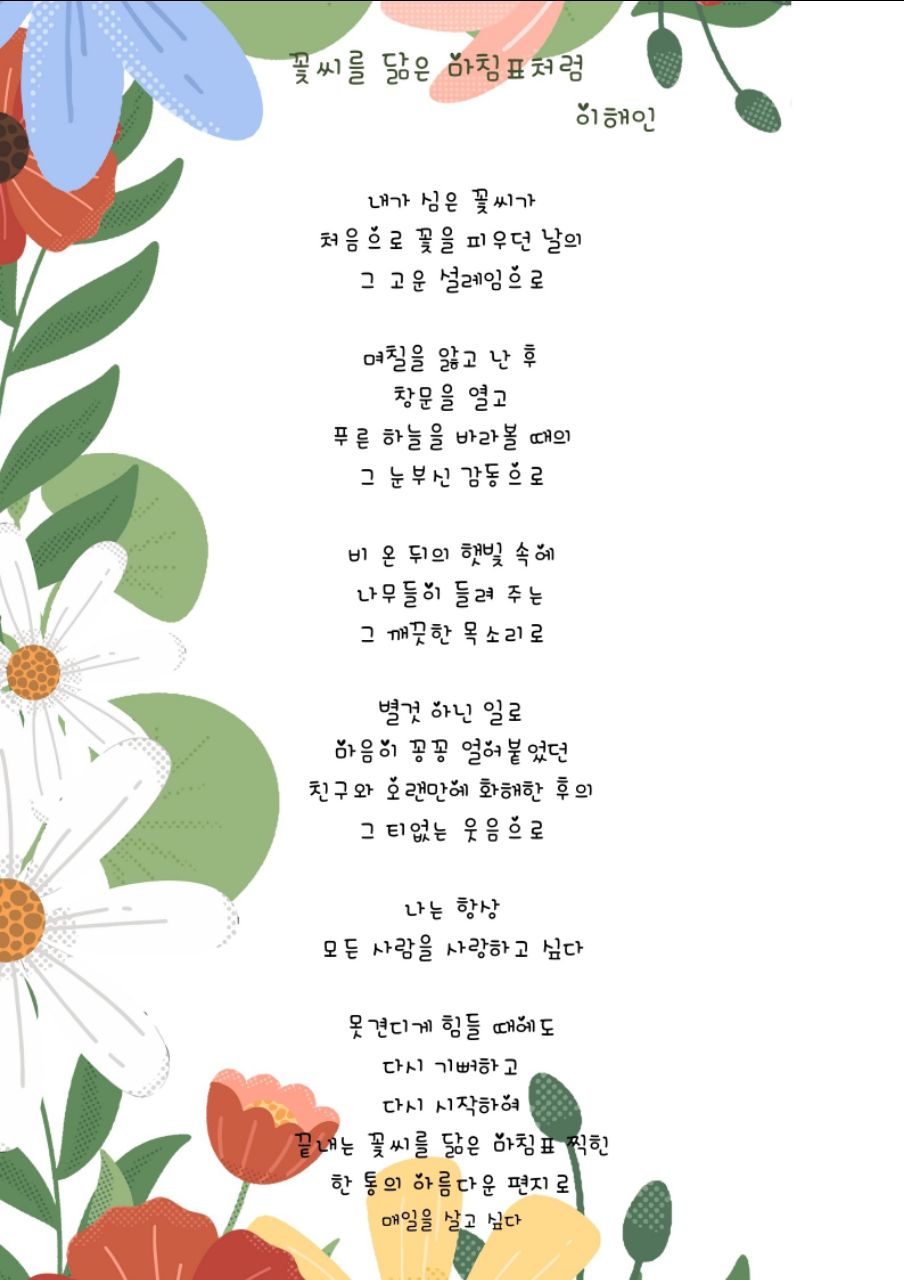 꽃씨를 닮은 마침표처럼
이해인
내가 심은 꽃씨가
처음으로 꽃을 피우던 날의
그 고운 설레임으로
며칠을 앓고 난 후
창문을 열고
푸른 하늘을 바라볼 때의
그 눈부신 감동으로
비 온 뒤의 햇빛 속에
나무들이 들려 주는
그 깨끗한 목소리로
별것 아닌 일로
마음이 꽁꽁 얼어붙었던
친구와 오랜만에 화해한 후의
그 티없는 웃음으로
나는 항상
모든 사람을 사랑하고 싶다
못견디게 힘들 때에도
다시 기뻐하고
다시 시작하여
끝내는 꽃씨를 닮은 마침표 찍힌
한 통의 아름다운 편지로
매일을 살고 싶다